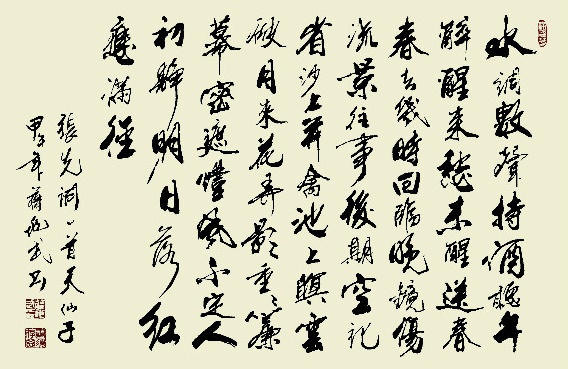 水調數聲持酒聽午
醉醒来愁未醒送春
春去幾時回臨晚鏡傷
流景往事後期空記
省沙上並禽池上暝雲
破月来花弄影重重簾
幕密遮燈風不定人
初靜明日落紅
應滿徑
張先詞一首天仙子
甲午年蔣武書